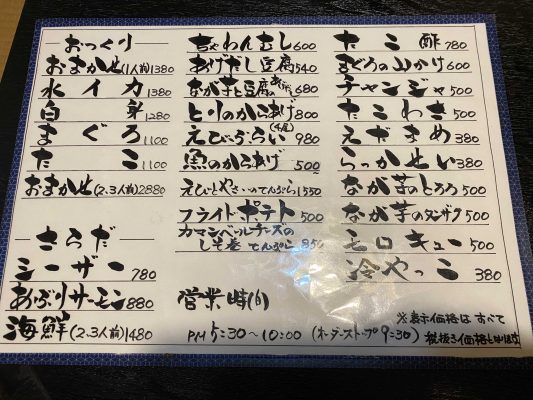 おつくり
おまかせ(1人前)1380
水イカ 1380
白身 1280
まぐろ 1100
たこ 1100
おまかせ(2.3人前)2880
さらだ
シーザー 780
あぶりサーモン 880
海鮮(2.3人前)1480
ちゃわんむし 600
あげだし豆腐 540
なが芋と豆腐の 680
とりのからあげ 800
えびふらい(4尾) 980
魚のからあげ 500
えびとやさいのてんぷら 1550
フライドポテト 500
カマンベールチーズの
しそ巻てんぷら 850
営業時(間)
PM 5:30～10:00(オーダーストップ9:30)
たこ酢 780
まぐろの山かけ 600
チャンジャ 500
たこわさ 500
えだまめ 380
らっかせい 380
なが芋のとろろ 500
なが芋のタンザク 500
モロキュー 500
冷やっこ 380
※表示価格はすべて
税抜き価格となります